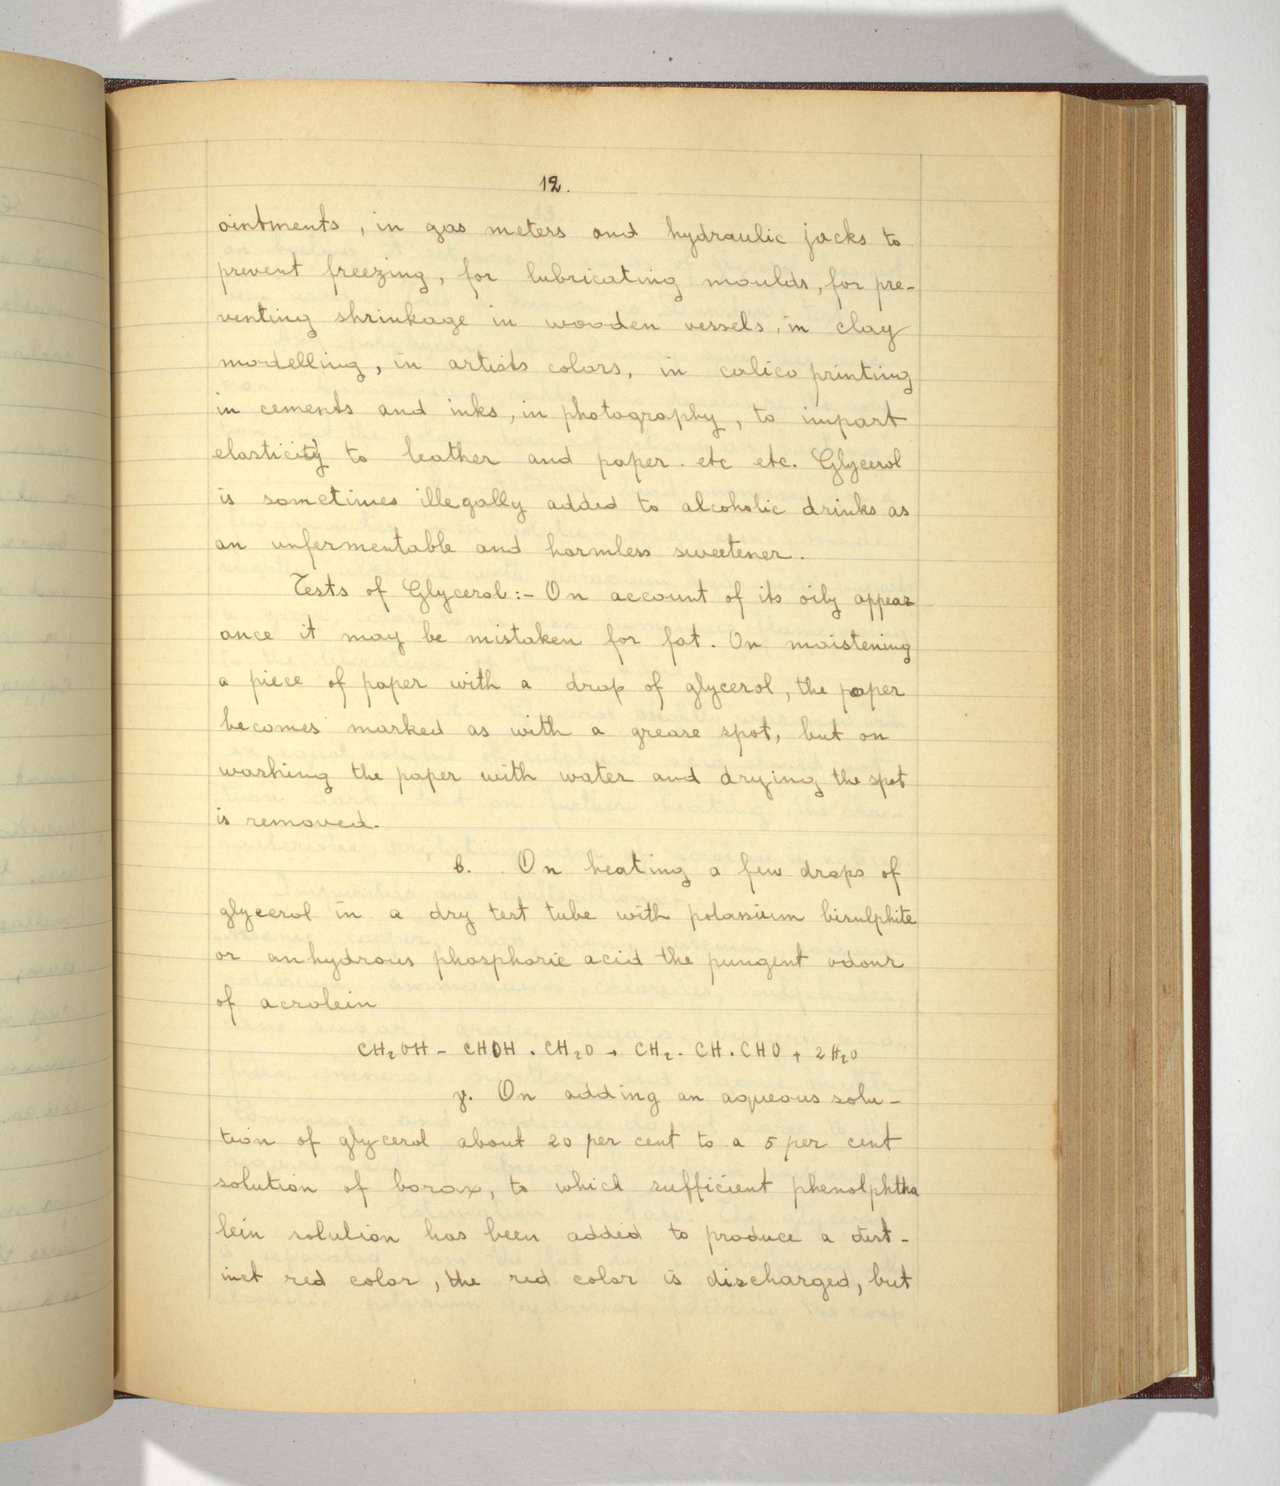 12.
ointments, in gas meters and hydraulic jacks to
prevent freezing, for lubricating moulds, for pre-
venting shrinkage in wooden vessels, in clay
modelling, in artists colors, in calico printing
in cements and inks, in photography, to impart
elasticity to leather and paper. etc etc. Glycerol
is sometimes illegally added to alcoholic drinks as
an unfermentable and harmless sweetener.
Tests of Glycerol:- On account of its oily appear
ance it may be mistaken for fat. On moistening
a piece of paper with a drop of glycerol, the paper
becomes marked as with a grease spot, but on
washing the paper with water and drying the spot
is removed.
b. On heating a few drops of
glycerol in a dry test tube with potassium bisulphite
or anhydrous phosphoric acid the pungent odour
of acrolein
CH₂OH - CHOH . CH₂O → CH₂. CH. CHO + 2H₂O
γ. On adding an aqueous solu-
tion of glycerol about 20 per cent to a 5 per cent
solution of borax, to which sufficient phenolphtha
lein solution has been added to produce a dist-
inct red color, the red color is discharged, but